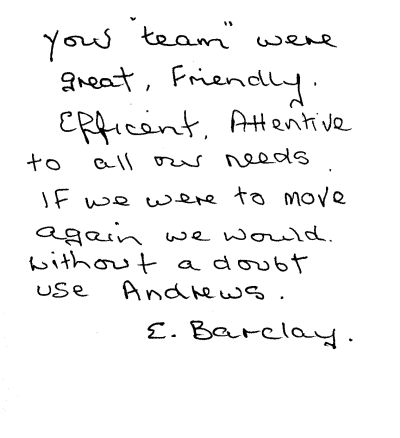 your "team" were
great, Friendly.
Efficent, Attentive
to all our needs.
IF we were to move
again we would.
without a doubt
use Andrews.
E. Barclay.